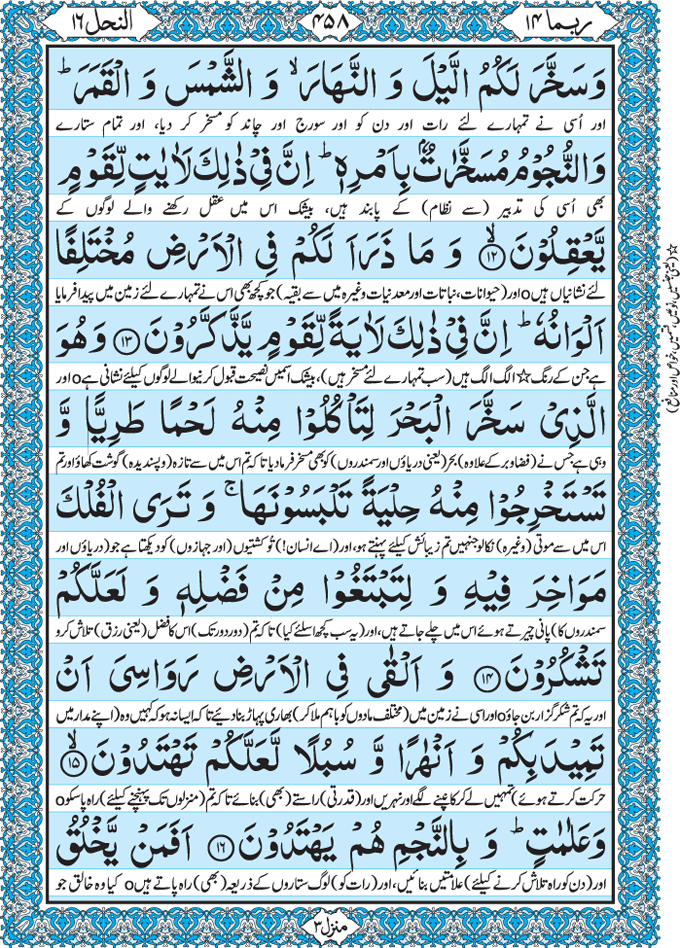 ربما ۱۴
۴۵۸
النحل ۱۶
وَ سَخَّرَ لَكُمُ الَّيْلَ وَ النَّهَارَ ۙ وَ الشَّمْسَ وَ الْقَمَرَ ؕ
اور اُسی نے تمہارے لئے رات اور دن کو اور سورج اور چاند کو مسخر کر دیا، اور تمام ستارے
وَ النُّجُوْمُ مُسَخَّرٰتٌۢ بِاَمْرِهٖ ؕ اِنَّ فِيْ ذٰلِكَ لَاٰيٰتٍ لِّقَوْمٍ
بھی اُسی کی تدبیر (سے نظام) کے پابند ہیں، بیشک اس میں عقل رکھنے والے لوگوں کے
يَّعْقِلُوْنَ ۙ‏﴿۱۲﴾ وَ مَا ذَرَاَ لَكُمْ فِي الْاَرْضِ مُخْتَلِفًا
لئے نشانیاں ہیںo اور (حیوانات، نباتات اور معدنیات وغیرہ میں سے بقیہ) جو کچھ بھی اس نے تمہارے لئے زمین میں پیدا فرمایا
اَلْوَانُهٗ ؕ اِنَّ فِيْ ذٰلِكَ لَاٰيَةً لِّقَوْمٍ يَّذَّكَّرُوْنَ ﴿۱۳﴾ وَ هُوَ
ہے جن کے رنگ ☆ الگ الگ ہیں (سب تمہارے لئے مسخر ہیں)، بیشک اسمیں نصیحت قبول کرنیوالے لوگوں کیلئے نشانی ہےo اور
الَّذِيْ سَخَّرَ الْبَحْرَ لِتَاْكُلُوْا مِنْهُ لَحْمًا طَرِيًّا وَّ
وہی ہے جس نے (فضا و بر کے علاوہ) بحر (یعنی دریاؤں اور سمندروں) کو بھی مسخر فرما دیا تاکہ تم اس میں سے تازہ (و پسندیدہ) گوشت کھاؤ اور تم
تَسْتَخْرِجُوْا مِنْهُ حِلْيَةً تَلْبَسُوْنَهَا ۚ وَ تَرَى الْفُلْكَ
اس میں سے موتی (وغیرہ) نکالو جنہیں تم زیبائش کیلئے پہنتے ہو، اور (اے انسان!) تُو کشتیوں (اور جہازوں) کو دیکھتا ہے جو (دریاؤں اور
مَوَاخِرَ فِيْهِ وَ لِتَبْتَغُوْا مِنْ فَضْلِهٖ وَ لَعَلَّكُمْ
سمندروں کا) پانی چیرتے ہوئے اس میں چلے جاتے ہیں، اور (یہ سب کچھ اسلئے کیا) تاکہ تم (دور دور تک) اس کا فضل (یعنی رزق) تلاش کرو
تَشْكُرُوْنَ ﴿۱۴﴾ وَ اَلْقٰى فِي الْاَرْضِ رَوَاسِيَ اَنْ
اور یہ کہ تم شکر گزار بن جاؤo اور اسی نے زمین میں (مختلف مادوں کو باہم ملا کر) بھاری پہاڑ بنا دیئے تاکہ ایسا نہ ہو کہ کہیں وہ (اپنے مدار میں
تَمِيْدَ بِكُمْ وَ اَنْهٰرًا وَّ سُبُلًا لَّعَلَّكُمْ تَهْتَدُوْنَ ۙ‏﴿۱۵﴾
حرکت کرتے ہوئے) تمہیں لے کر کانپنے لگے اور نہریں اور (قدرتی) راستے (بھی) بنائے تاکہ تم (منزلوں تک پہنچنے کیلئے) راہ پا سکوo
وَ عَلٰمٰتٍ ؕ وَ بِالنَّجْمِ هُمْ يَهْتَدُوْنَ ﴿۱۶﴾ اَفَمَنْ يَّخْلُقُ
اور (دن کو راہ تلاش کرنے کیلئے) علامتیں بنائیں، اور (رات کو) لوگ ستاروں کے ذریعہ (بھی) راہ پاتے ہیںo کیا وہ خالق جو
منزل ۳
☆ (یعنی جنسیں، نوعیں، قسمیں، خواص اور منافع)